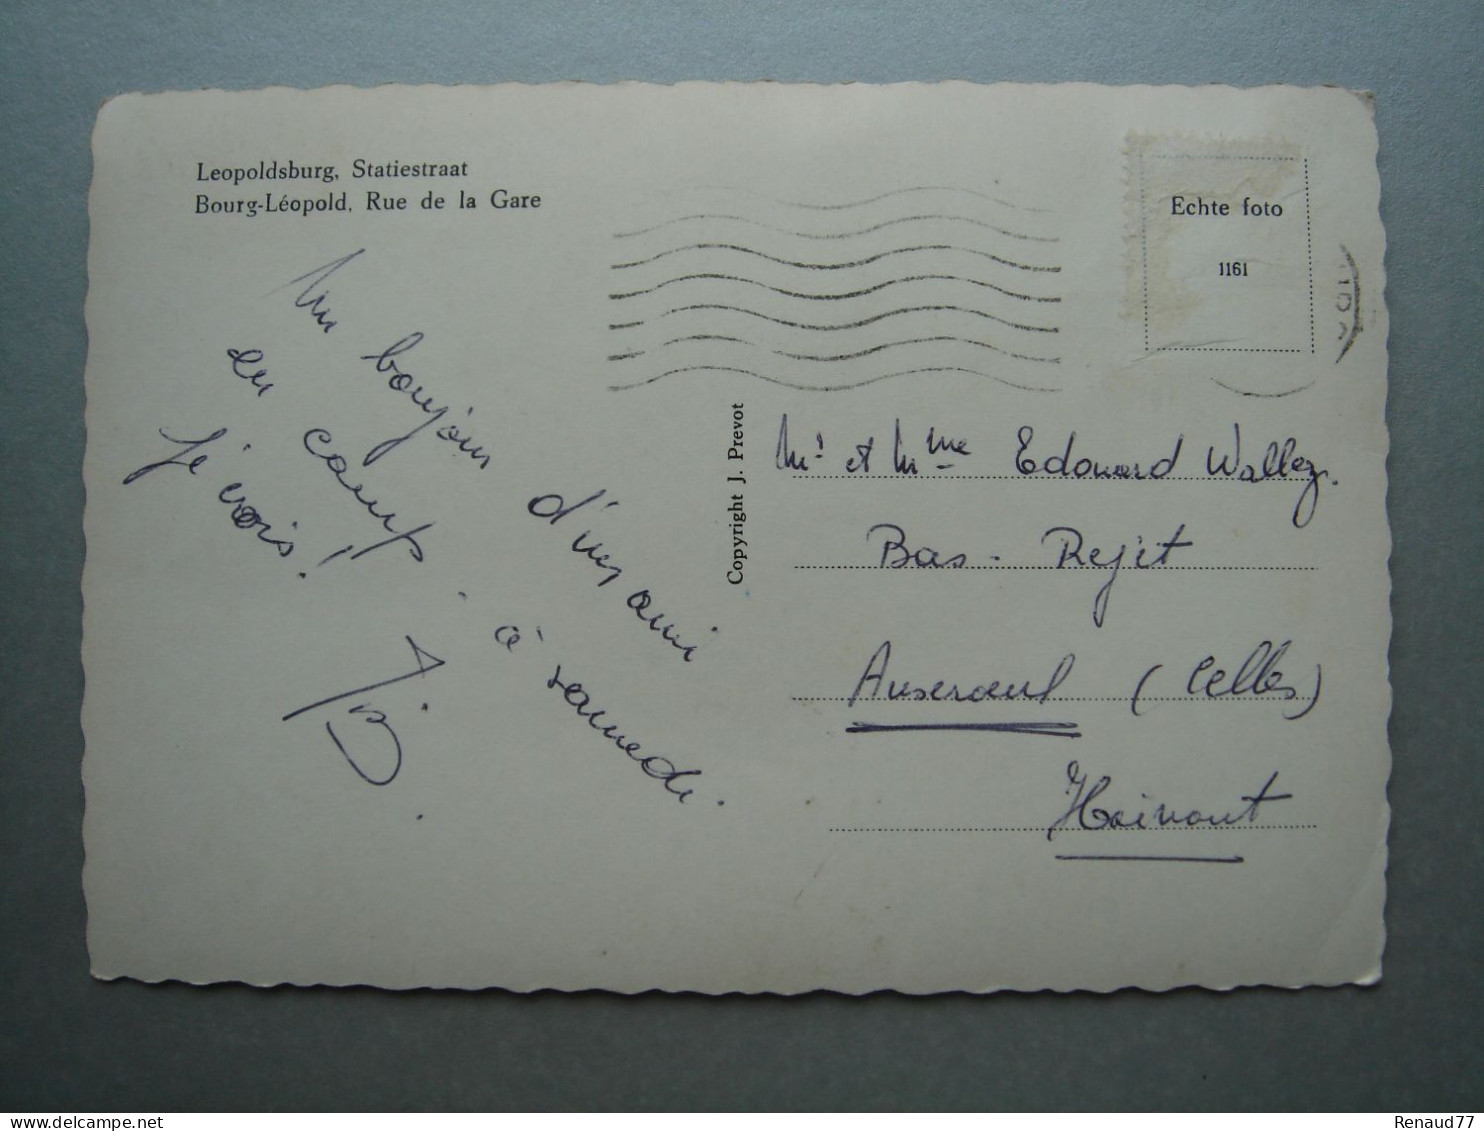 Leopoldsburg, Statiestraat
Bourg-Léopold, Rue de la Gare
Echte foto
1161
Copyright J. Prevot
Un bonjour d'un ami
en camp. à samedi.
Je crois!
JB.
Mr et Mme Edouard Wallez.
Bas-Rejet
Anseroeul (Celles)
Hainaut
Renaud77